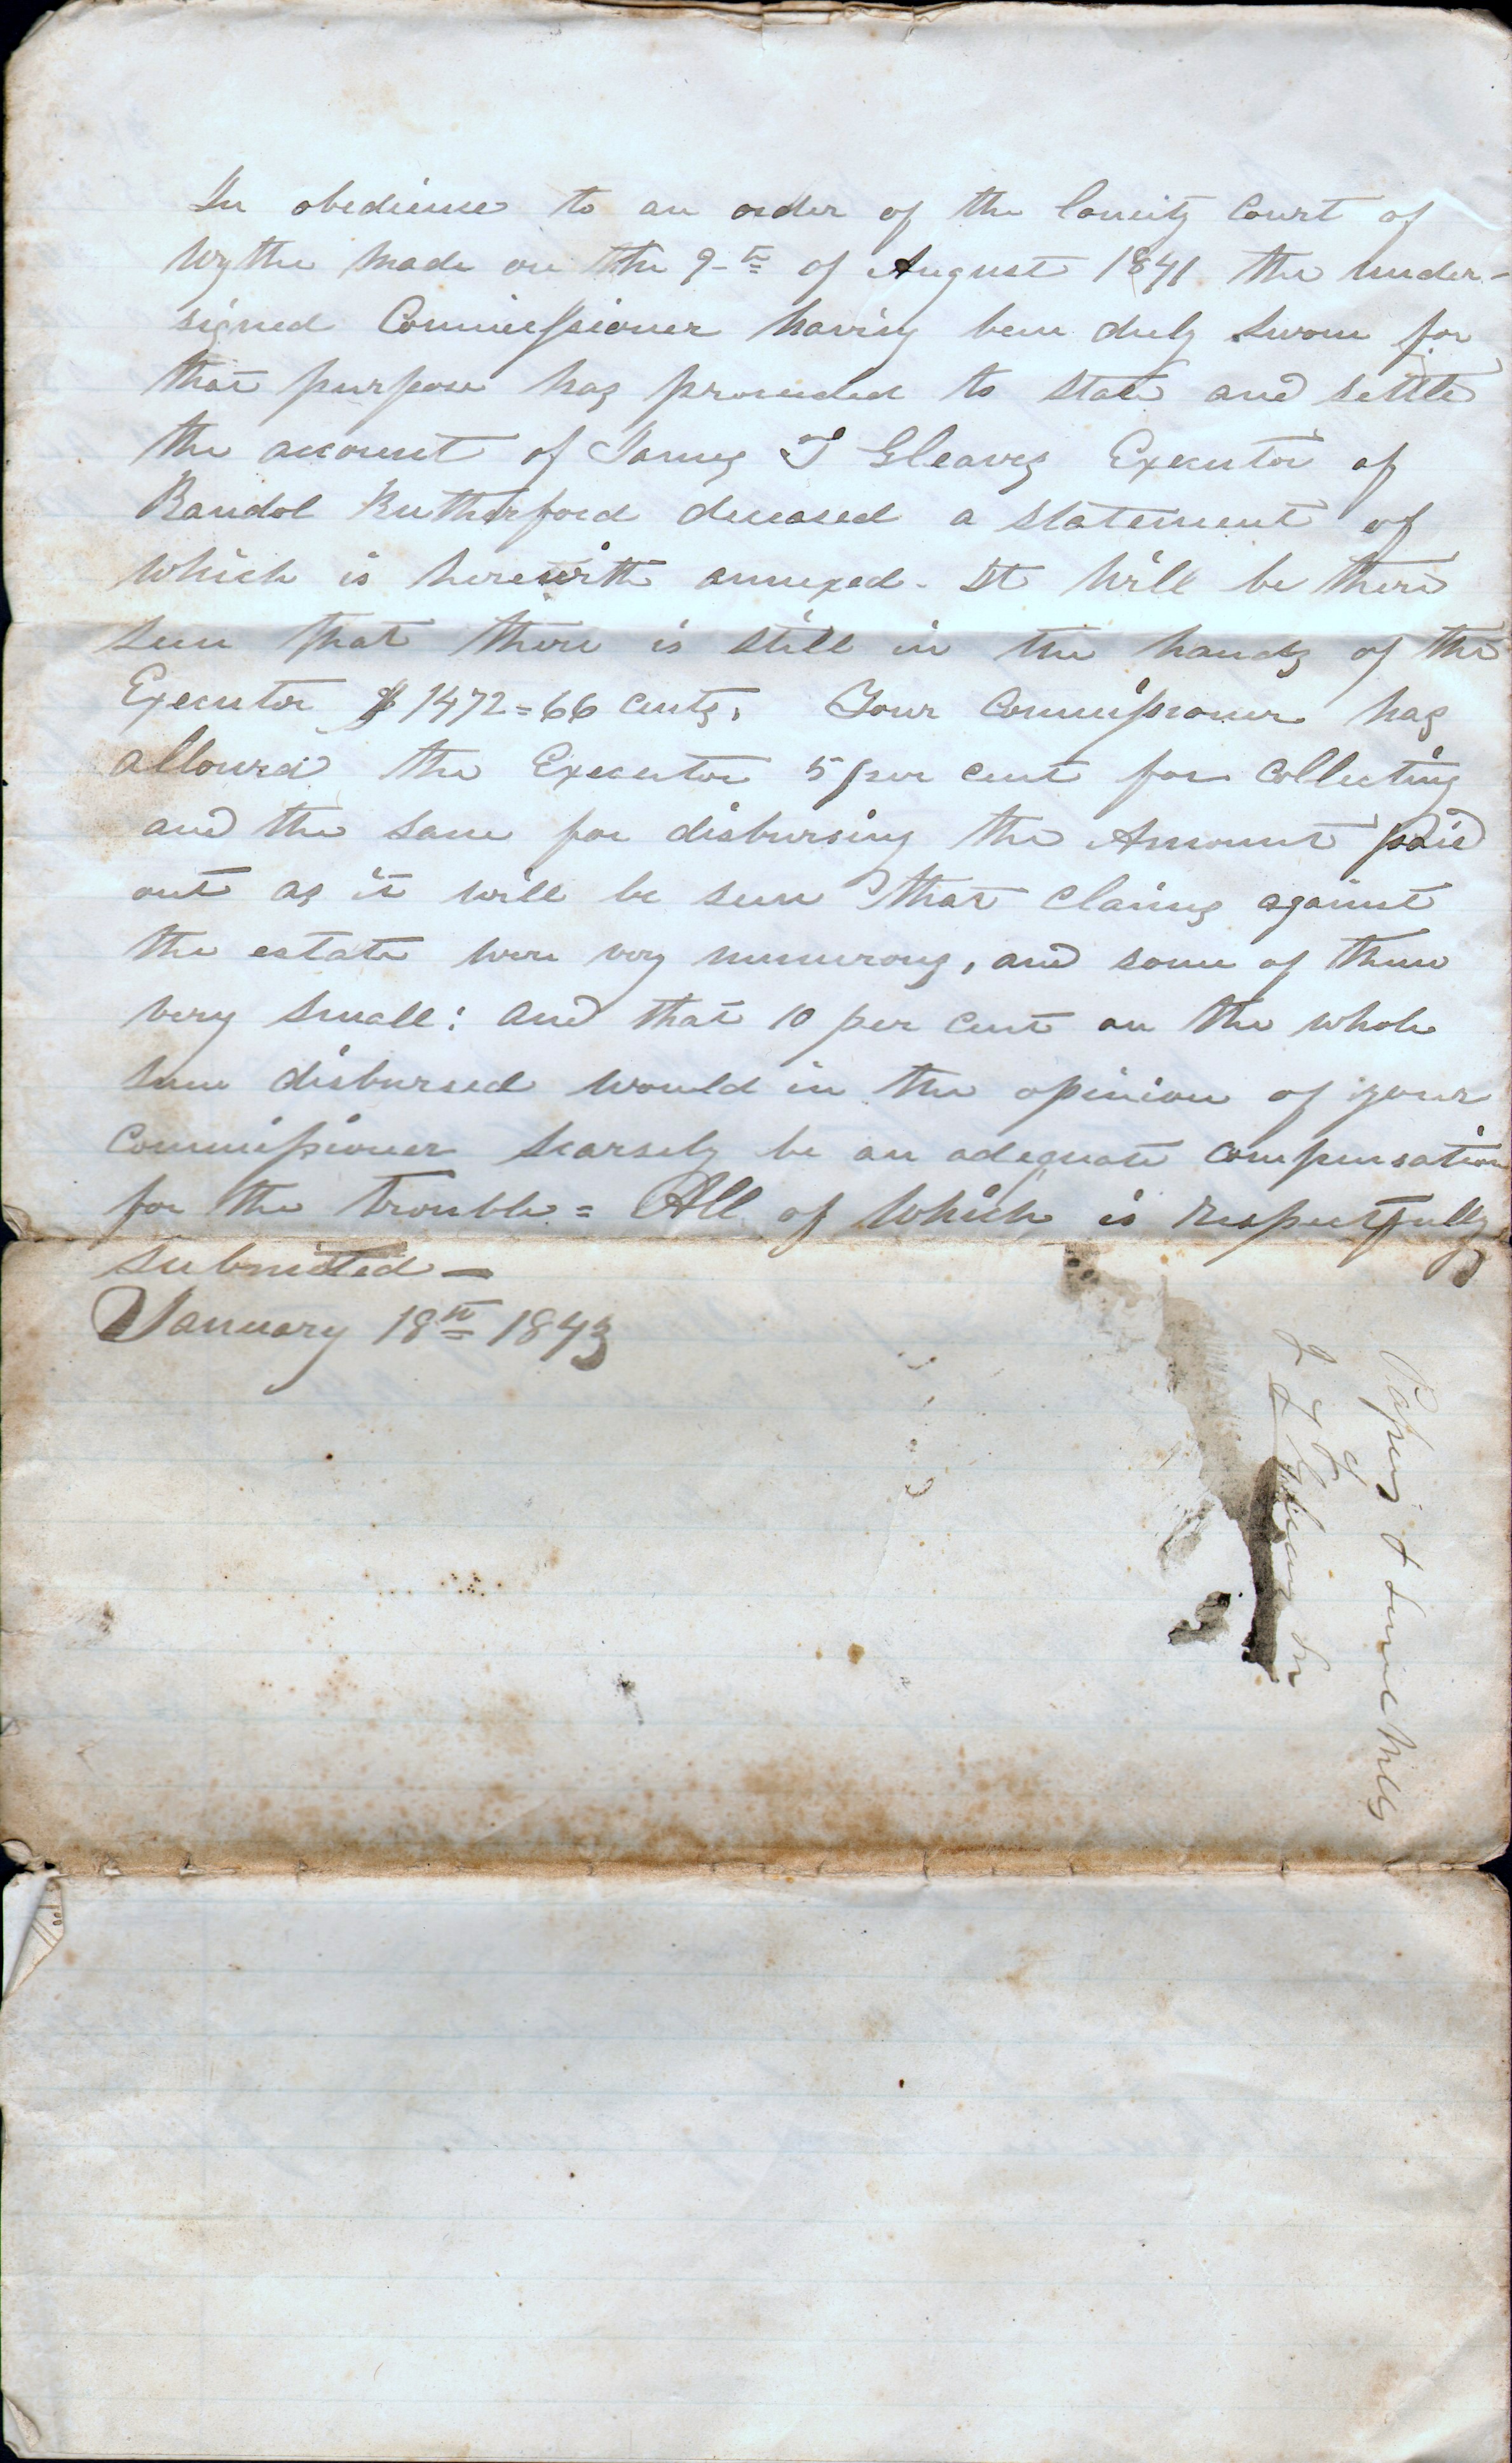 In obedience to an order of the County Court of
Wythe made on the 9-th of August 1841 the under-
signed Commissioner having been duly sworn for
that purpose has proceeded to state and settle
the account of James T Gleaves Executor of
Randol Rutherford deceased a statement of
which is herewith annexed. It will be there
seen that there is still in the hands of the
Executor $1472=66 cents. Your Commissioner has
allowed the Executor 5 per cent for collecting
and the same for disbursing the Amount paid
out as it will be seen that claims against
the estate were very numerous, and some of them
very small: and that 10 per cent on the whole
sum disbursed would in the opinion of your
Commissioner scarsely be an adequate compensation
for the trouble = All of which is respectfully
submitted —
January 18th 1843
Papers of
of
J T Gleaves Sr